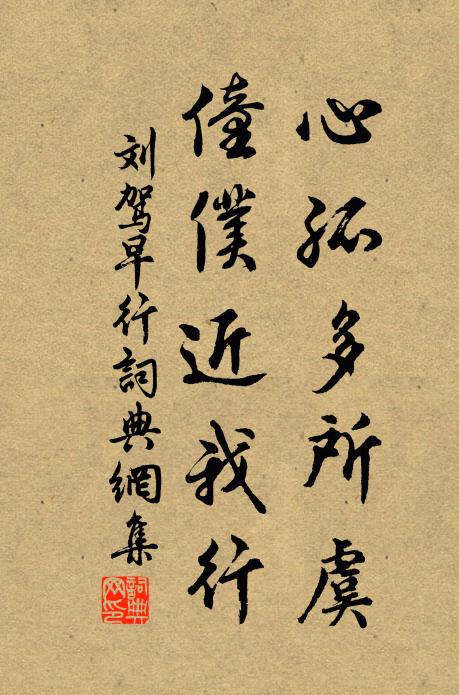 心孤多所虞
僮僕近我行
刘驾早行詞典網集
詞典网印